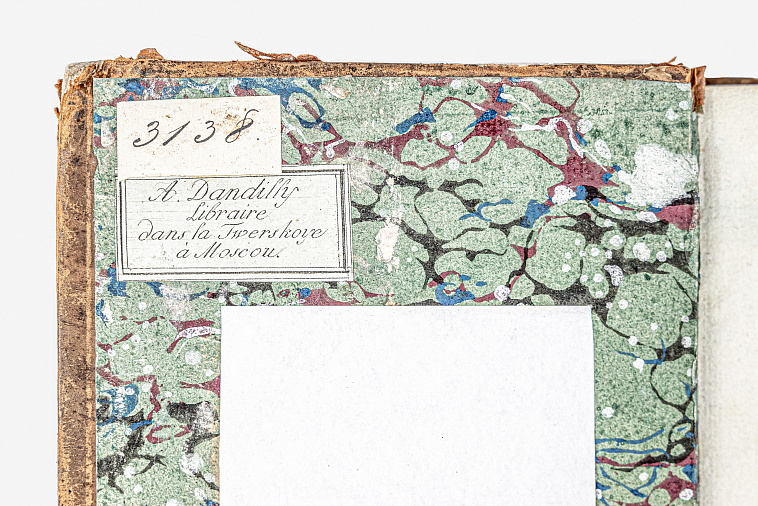 3138.
A. Dandilly
Libraire
dans la Twerskoye
à Moscou.